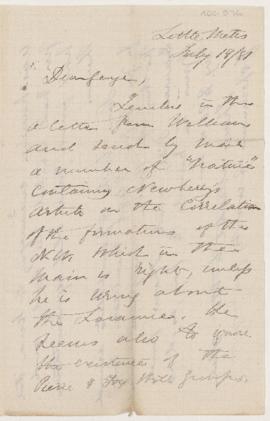 Little Metis
July 19/81
Dear George,
I enclose in this
a letter from William
and send by mail
a number of "Nature"
containing Newberrys
article on the Correlation
of the formations of the
N.W. which in the
main is right, unless
he is wrong about
the Laramie. He
seems also to ignore
the existence of the
Pierre & Fox Hills groups.